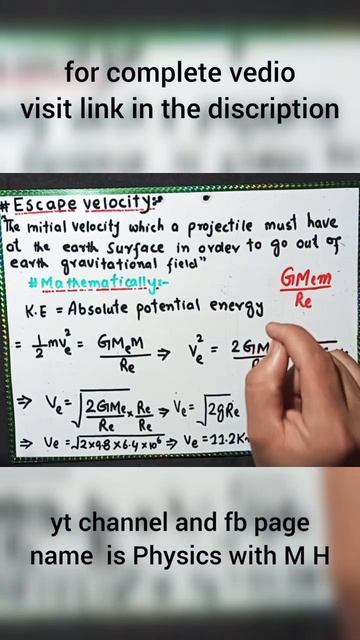 for complete vedio
visit link in the discription
# Escape velocity:-
"The initial velocity which a projectile must have
at the earth surface in order to go out of
earth gravitational field"
# Mathematically:-
GMem
Re
K.E = Absolute potential energy
= 1/2 mve² = GMeM/Re ⇒ Ve² = 2GM
⇒ Ve = √2GMe/Re × Re/Re ⇒ Ve = √2gRe
⇒ Ve = √2×9.8×6.4×10⁶ ⇒ Ve = 11.2K
yt channel and fb page
name is Physics with M H